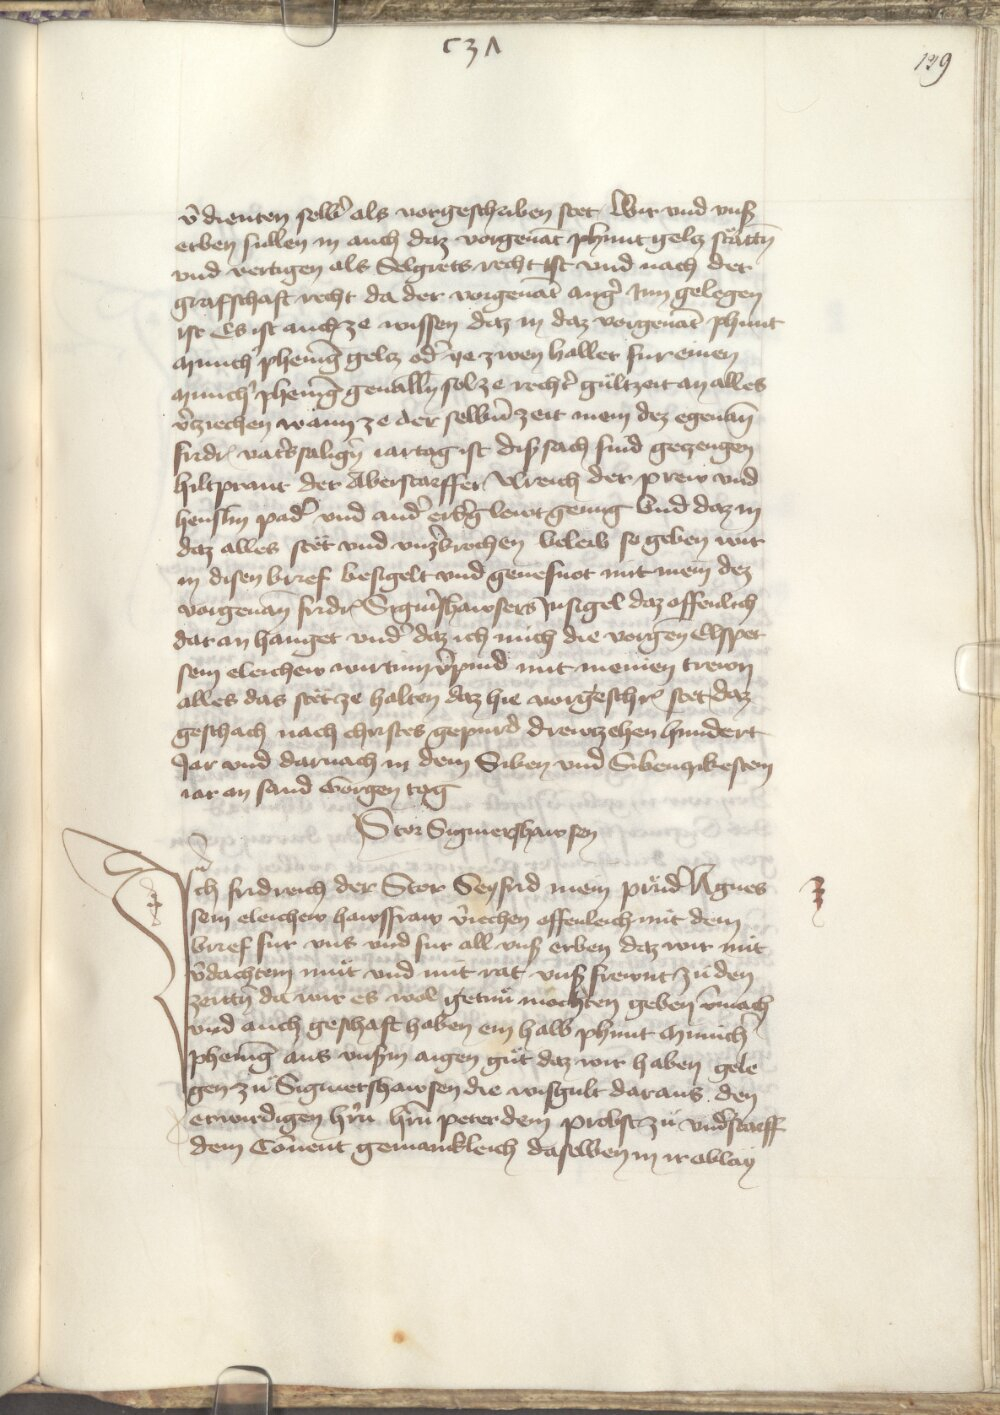 c3Λ
139
v̄dienten selb̾ als vorgeschriben stet Wir vnd vns̾
erben sullen in auch daz vorgenāt phunt gelcz stättn̄
vnd vertigen als Selgrets recht ist vnd nach der
grafschaft recht da der vorgenāt ang̾ Inn gelegen
ist Es ist auch ze wissen daz in daz vorgenāt phunt
münich̾ pheniḡ gelcz od̾ ye zwen haller fur einen
münich̾ pheniḡ geuallñ sol ze recht̾ gültzeit an alles
v̾cziechen wann ze der selbn̄ zeit mein dez egenan̄
fridr̾ vat̾s saligñ iartag ist diss sach sind geczeugen
hiltprant der Aberstorffer Vlreich der prew vnd
henslin pad̾ vnd and̾ erb̾g̾ lewt genug Vnd daz in
daz alles stët vnd vnz̾brochen beleib so geben wir
in disen brief besigelt vnd geuestnot mit mein dez
vorgenan̄ fridr̾ Sigm̾shawsers Insigel daz offenlich
dar an hanget vnd̾ daz ich mich die vorgen̄ Elspet
sein eleichew wirtinn v̾pind mit meinen trewn
alles das stët ze halten daz hie vorgeschr̾ stet daz
geschach nach christes gepurd drewtzehen hundert
Jar vnd darnach in dem Siben vnd Sibenczikesten
iar an sand Gorgen tag
Stor Sigmershawsen
Ich fridreich der Stor Seyfrid mein prüd̾ Agnes
sein eleichew hawsfraw v̾iechen offenleich mit dem
brief fur vns vnd fur all vns̾ erben daz wir mit
v̾dachtem müt vnd mit rat vns̾ frewnt zu den
zeittñ da wir es wol getuñ mochten geben v̾mach
vnd auch geschaft haben ein halb phunt Münich̾
pheniḡ aus vns̾m aigen güt daz wir haben gele
gen zu Sigmershawsen die wisgult daraus den
erwirdigen h̾rn h̾rn peter dem probst zu vnd̾storff
dem Conuent gemainkleich daselben in ir oblay